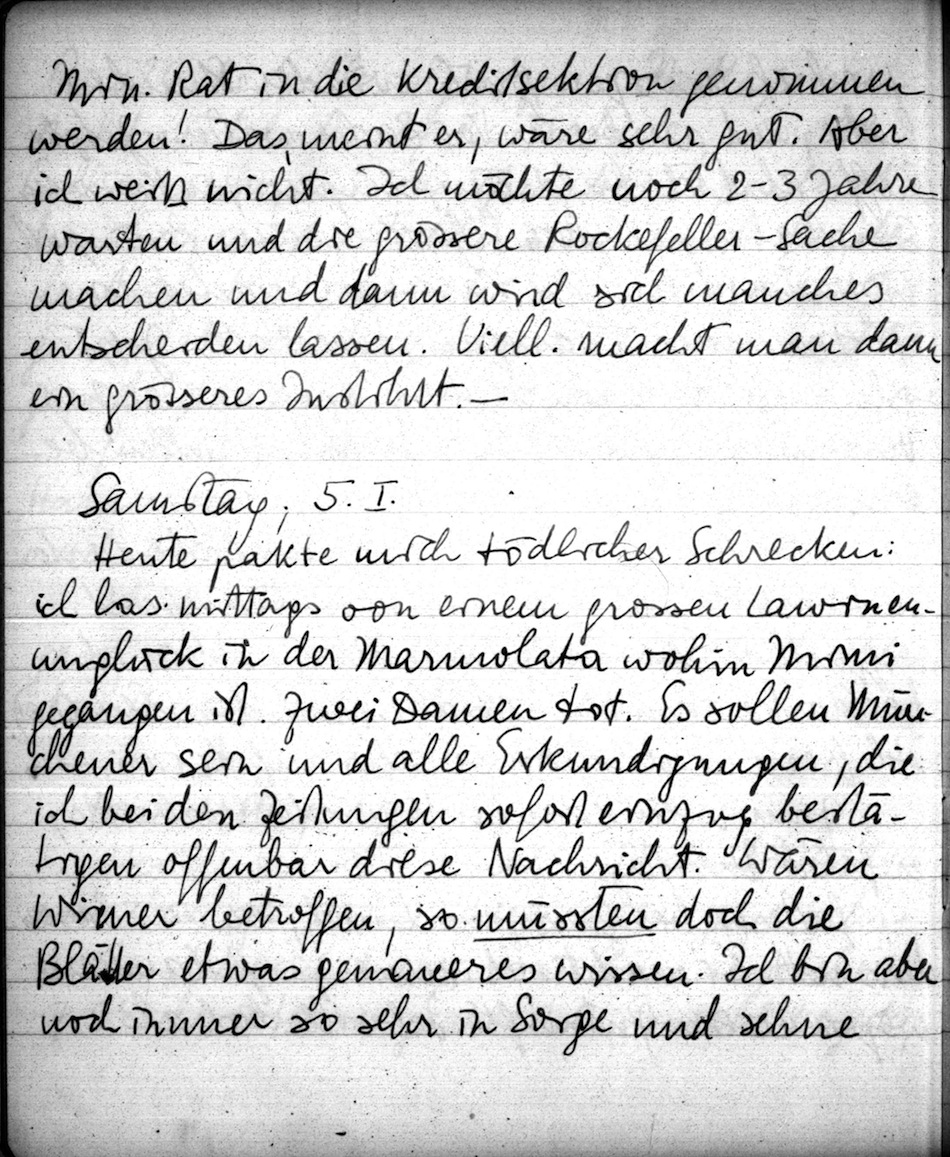 Min. Rat in die Kreditsektion genommen
werden! Das, meint er, wäre sehr gut. Aber
ich weiß nicht. Ich möchte noch 2-3 Jahre
warten und die grössere Rockefeller-Sache
machen und dann wird sich manches
entscheiden lassen. Viell. macht man dann
ein grösseres Institut. —
Samstag, 5. I.
Heute pakte mich tödlicher Schrecken:
ich las mittags von einem grossen Lawinen-
unglück in der Marmolata wohin Mimi
gegangen ist. Zwei Damen tot. Es sollen Mün-
chener sein und alle Erkundigungen, die
ich bei den Zeitungen sofort einzog bestä-
tigen offenbar diese Nachricht. Wären
Wiener betroffen, so müssten doch die
Blätter etwas genaueres wissen. Ich bin aber
noch immer so sehr in Sorge und sehne